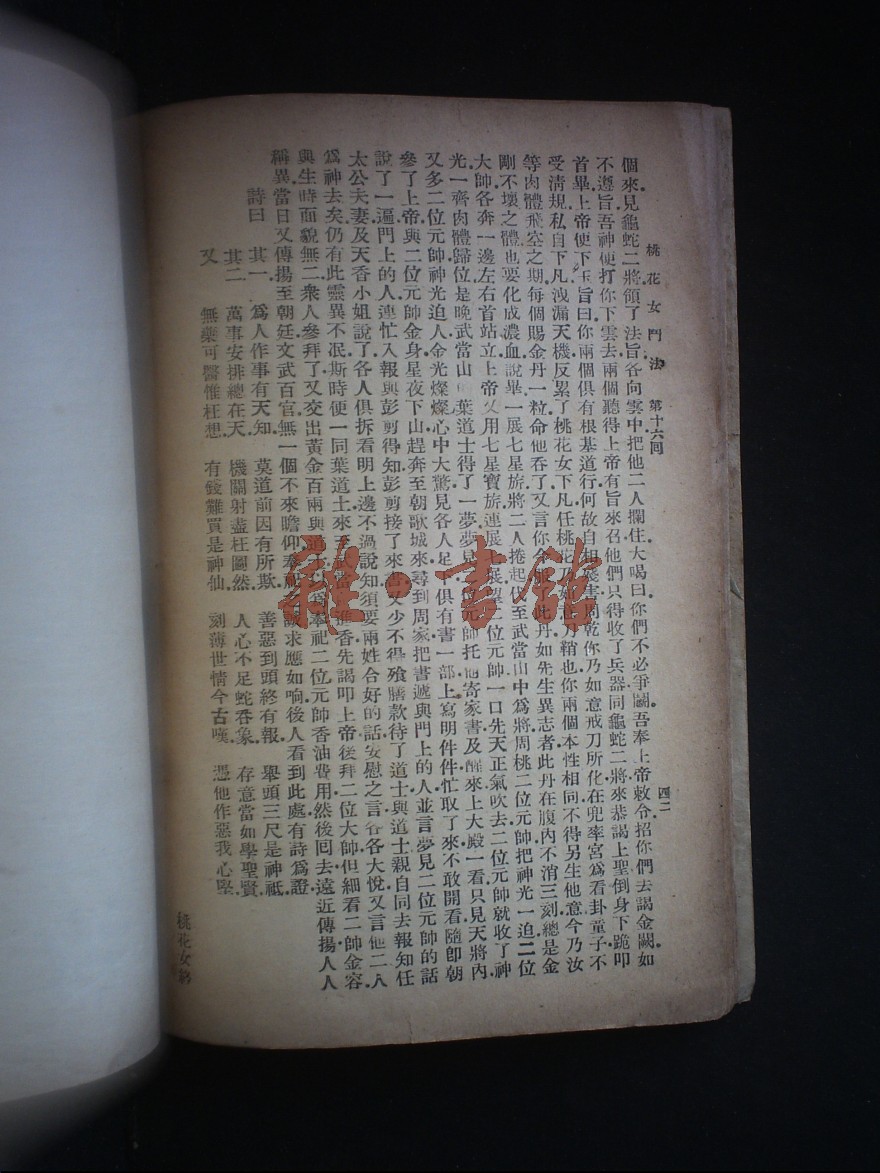 桃花女鬥法 第十六回 四二
個來見龜蛇二將領了法旨各向雲中把他二人攔住大喝曰你們不必爭鬬吾奉上帝敕令招你們去謁金闕如
不遵旨吾神便打你下雲去兩個聽得上帝有旨來召他們只得收了兵器同龜蛇二將來恭謁上聖倒身下跪叩
首畢上帝便下玉旨曰你兩個俱有根基道行何故自相周乾你乃如意戒刀所化在兜率宮爲看卦童子不
受淸規私自下凡洩漏天機反累了桃花女下凡任桃花乃刀鞘也你兩個本性相同不得另生他意今乃汝
等肉體飛空之期每個賜金丹一粒命他吞了又言你丹如先生異志者此丹在腹內不消三刻總是金
剛不壞之體也要化成濃血說畢一展七星旅將二人捲起至武當山中爲將周桃二位元帥把神光一迫二位
大帥各奔一邊左右首站立上帝又用七星寶旅連展展望二位元帥一口先天正氣吹去二位元帥就收了神
光一齊肉體歸位是晚武當山葉道士得了一夢夢見位元帥托他寄家書及醒來上大殿一看只見天將內
又多二位元帥神光迫人金光燦燦心中大驚見各人足俱有書一部上寫明件件忙取了來不敢開看隨卽朝
參了上帝與二位元帥金身星夜下山趕奔至朝歌城來尋到周家把書遞與門上的人並言夢見二位元帥的話
說了一遍門上的人連忙入報與彭剪得知彭剪接了來書又少不得飱膳款待了道士與道士親自同去報知任
太公夫妻及天香小姐說了各人俱拆看明上邊不過說知須要兩姓合好的話安慰之言各各大悅又言他二人
爲神去矣仍有此靈異不泯斯時便一同葉道士來至武當進香先謁叩上帝後拜二位大帥但細看二帥金容
與生時面貌無二衆人參拜了又交出黃金百兩與道士以爲奉祀二位元帥香油費用然後囘去遠近傳揚人人
稱異當日又傳揚至朝廷文武百官無一個不來瞻仰奉祀求應如响後人看到此處有詩爲證
詩曰
其一 爲人作事有天知 莫道前因有所欺 善惡到頭終有報 舉頭三尺是神祗
其二 萬事安排總在天 機關射盡枉圖然 人心不足蛇吞象 存意當如學聖賢
又 無藥可醫惟枉想 有錢難買是神仙 刻薄世情今古嘆 憑他作惡我心堅
桃花女終
雜·書館